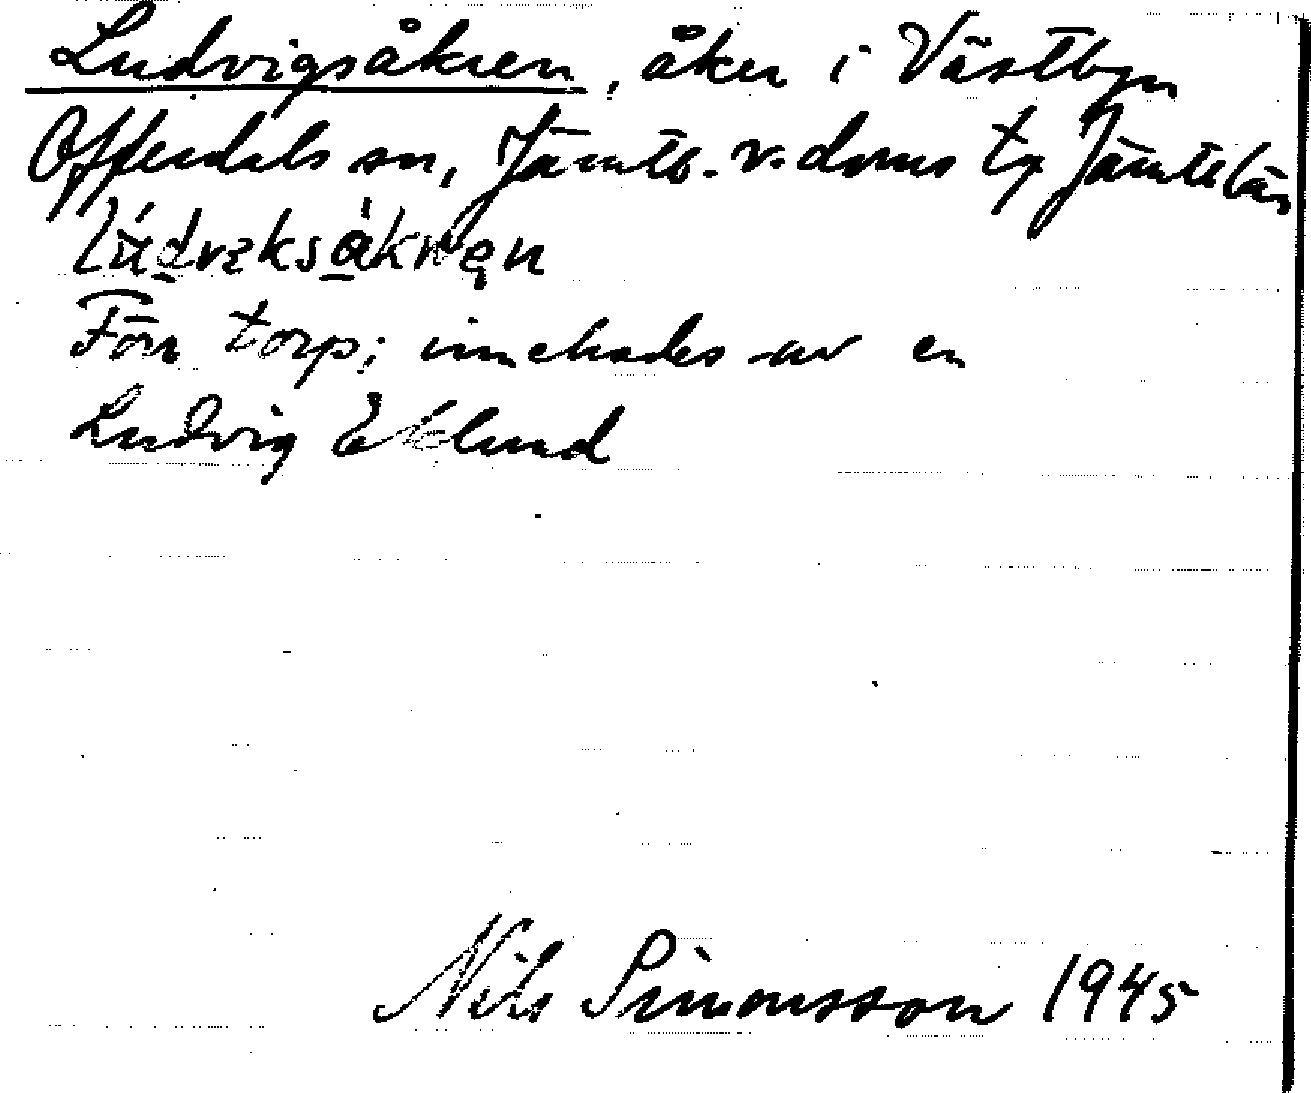 Ludvigsåkren, åker i Västbyn
Offerdals sn, Jämtl. v. doms tg Jämtl län
Förr torp; innehades av en
Ludvig Eklund
Nils Simonsson 1945